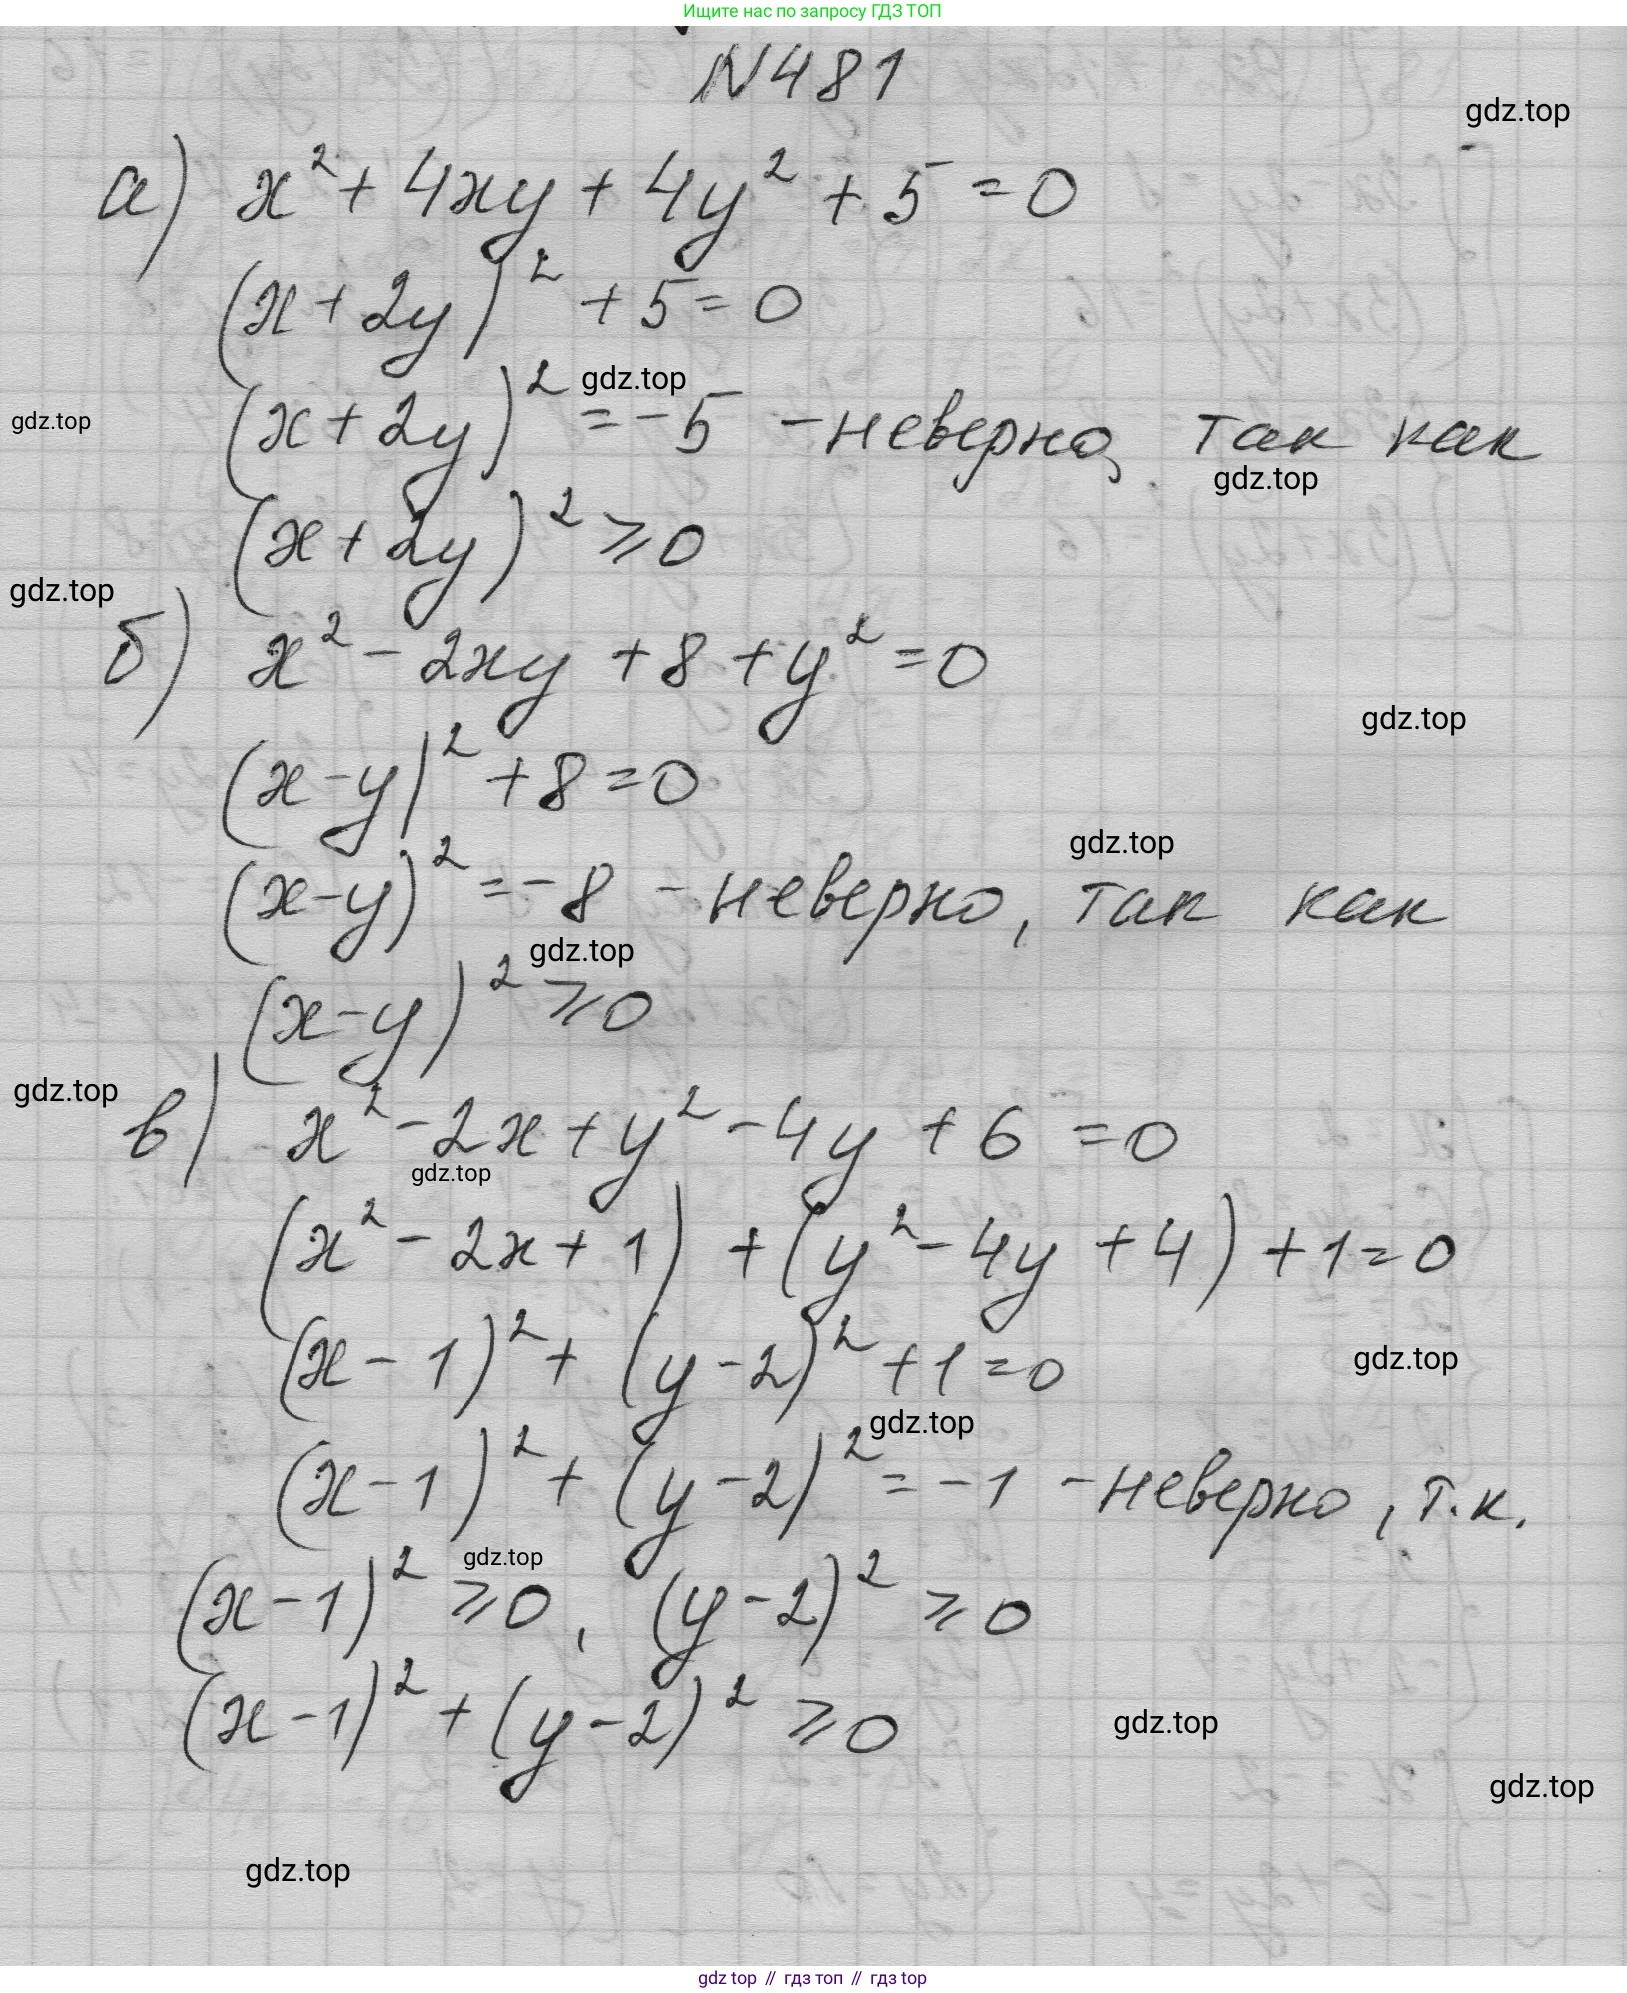 Ищите нас по запросу ГДЗ ТОП
N481
gdz.top
а) x² + 4xy + 4y² + 5 = 0
(x + 2y)² + 5 = 0
gdz.top
(x + 2y)² = -5 - неверно, так как
gdz.top
gdz.top
(x + 2y)² ≥ 0
gdz.top
б) x² - 2xy + 8 + y² = 0
gdz.top
(x - y)² + 8 = 0
gdz.top
(x - y)² = -8 - неверно, так как
gdz.top
(x - y)² ≥ 0
gdz.top
в) x² - 2x + y² - 4y + 6 = 0
gdz.top
(x² - 2x + 1) + (y² - 4y + 4) + 1 = 0
(x - 1)² + (y - 2)² + 1 = 0
gdz.top
gdz.top
(x - 1)² + (y - 2)² = -1 - неверно, т.к.
gdz.top
(x - 1)² ≥ 0, (y - 2)² ≥ 0
(x - 1)² + (y - 2)² ≥ 0
gdz.top
gdz.top
gdz.top
gdz top // гдз топ // гдз top